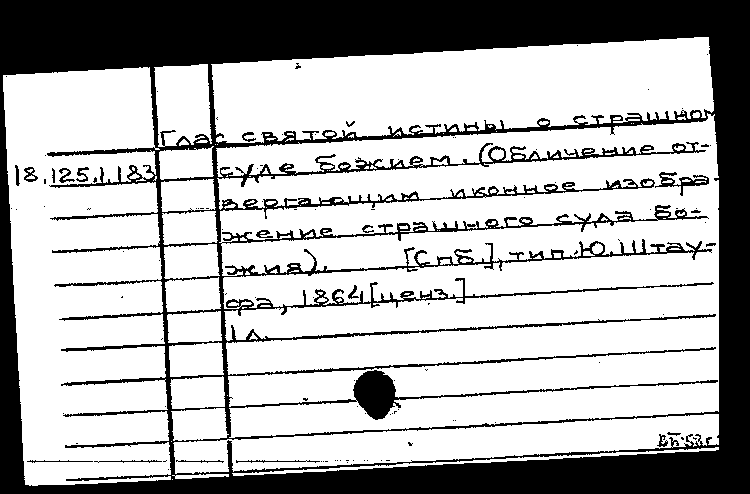 Глас святой истины о страшном
18.125.1.183 суде божием. (Обличение от-
вергающим иконное изобра-
жение страшного суда бо-
жия). [Спб.], тип. Ю. Штау-
фа, 1864 [ценз.].
1 л.